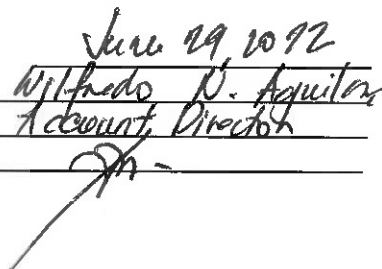 June 29, 2012
Wilfredo N. Aguilar
Account Director